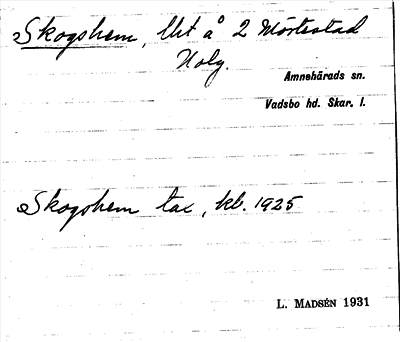 Skogshem, lht å 2 Mörtestad
Holg.
Amnehärads sn.
Vadsbo hd. Skar. l.
Skogshem tax, kb. 1925
L. MADSÉN 1931